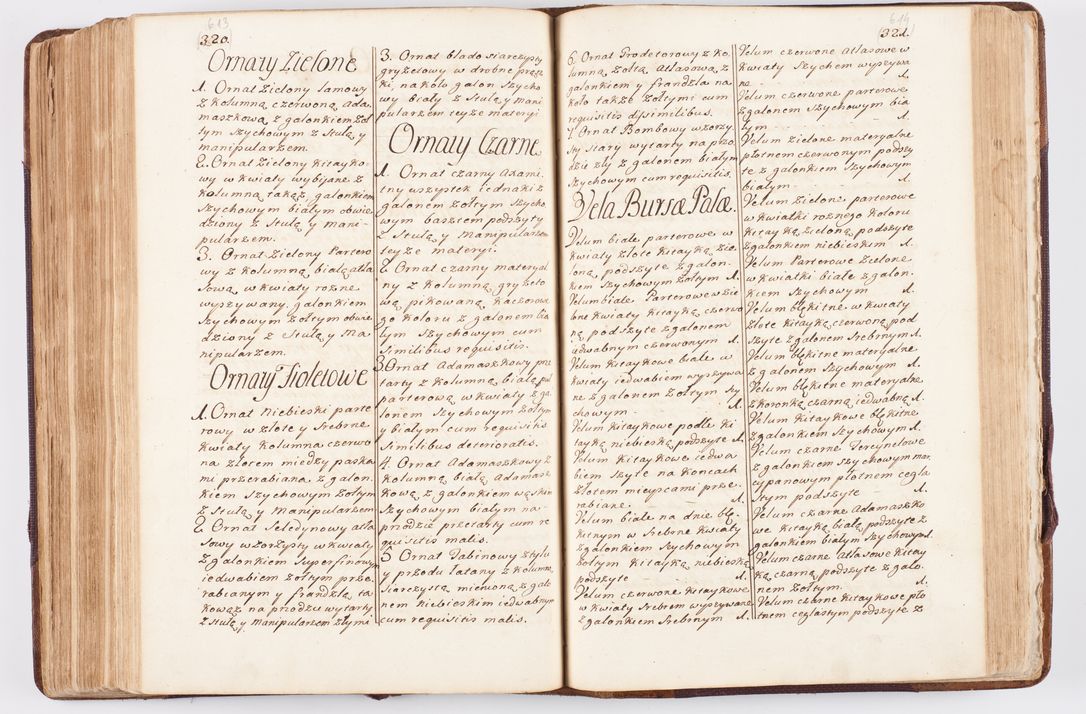 613
320.
Ornaty Zielone
1. Ornat Zielony Lamowy
z kolumną czerwoną ada
maszkową z galonkiem żoł
tym szychowym z stułą y
manipularzem.
2. Ornat Zielony kitayko
wy w kwiaty wybijane z
kolumną takąż, galonkiem
szychowym białym obwie
dziony z stułą y mani
pularzem.
3. Ornat Zielony Partero
wy z kolumną białą atła
sową w kwiaty rozne
wyszywany. galonkiem
szychowym żołtym obwie
dziony z stułą y ma
nipularzem.
Ornaty Fioletowe
1. Ornat Niebieski parte
rowy w złote y srebrne
kwiaty kolumna czerwo
na złotem miedzy paska
mi przerabiana, z galon
kiem szychowym żołtym
z stułą y manipularzem
2. Ornat Seledynowy atła
sowy wzorzysty w kwiaty
z galonkiem superfinowym
iedwabiem żołtym prze
rabianym y frandzlą ta
kowąż na przodzu wytarty
z stułą y manipularzem złymi
3. Ornat blado siarczysty
gryzetowy w drobne prążki
ki, na koło galon szycho
wy biały z stułą y mani
pularzem teyże materyi
Ornaty Czarne.
1. Ornat czarny axami
tny wszystek iednaki z
galonem żołtym szycho
wym basziem podszyty
z stułą y manipularzem
teyże materyi.
2. Ornat czarny materyal
ny z kolumną gryzeto
wą pikowaną kaczorowe
go koloru z galonem bia
łym szychowym cum
similibus requisitis.
3. Ornat Adamaszkowy prze
tarty z kolumną białą pół
parterową w kwiaty z ga
lonem szychowym żołtym
y białym cum requisitis
similibus detterioratis.
4. Ornat Adamaszkowy z
kolumną białą Adamasz
kową z galonkiem wąskim
szychowym białym na
przodzie przetarty cum re
quisitis malis.
5 Ornat Tabinowy z tyłu
y przodu łatany z kolumną
siarczystą mienioną z galo
nem niebieskim iedwabnym
cum requisitis malis.
614
321.
6. Ornat Grodetorowy z ko
lumną żołtą Atłasową z
galonkiem y frandzlą na
koło także żołtymi cum
requisitis dissimilibus.
7. Ornat Bombowy wzorzy
sty stary wytarty na przo
dzie zły z galonem białym
szychowym cum requisitis.
Vela Bursæ Palæ.
Velum białe parterowe w
kwiaty złote kitayką zie
loną podszyte z galon
kiem szychowym żołtym 1.
Velum białe Parterowe w zie
lone kwiaty kitayką czerwo
ną podszyte z galonem
iedwabnym czerwonym 1.
Velum kitaykowe białe w
kwiaty iedwabiem wyszywa
ne z galonem żołtym szy
chowym. 1.
Velum kitaykowe podłe ki
tayką niebieską podszyte 1.
Velum kitaykowe iedwa
biem szyte na koncach
złotem mieyscami prze
rabiane 1.
Velum białe na dnie błę
kitnym w srebrne kwiaty
z galonkiem szychowym
żołtym kitayką niebieską
podszyte 1.
Velum czerwone kitaykowe
w kwiaty srebrem wyszywane
z galonkiem srebrnym 1.
Velum czerwone atłasowe w
kwiaty szychem wyszywa
ne 1.
Velum czerwone parterowe
z galonem szychowym bia
łym 1.
Velum zielone materyalne
płotnem czerwonym podszy
te z galonkiem szychowym
białym 1.
Velum zielone parterowe
w kwiatki roznego koloru
kitayką zieloną podszyte
z galonkiem niebieskim 1.
Velum Parterowe Zielone
w kwiatki białe z galon
kiem szychowym 1.
Velum błękitne w kwiaty
złote kitayką czerwoną pod
szyte z galonem srebrnym 1.
Velum błękitne materyalne
z galonem szychowym 1.
Velum błękitne materyalne
z koronką czarną iedwabną 1.
Velum kitaykowe błękitne
z galonkiem szychowym 1.
Velum czarne Tercynelowe
z galonkiem szychowym mar
cypanowym płotnem cegla
stym podszyte 1.
Velum czarne Adamaszko
we kitayką białą podszyte z
galonkiem białym szychowym 1.
Velum czarne Atłasowe kitay
ką czarną podszyte z galo
nem żołtym. 1.
Velum czarne kitaykowe pło
tnem ceglastym podszyte z